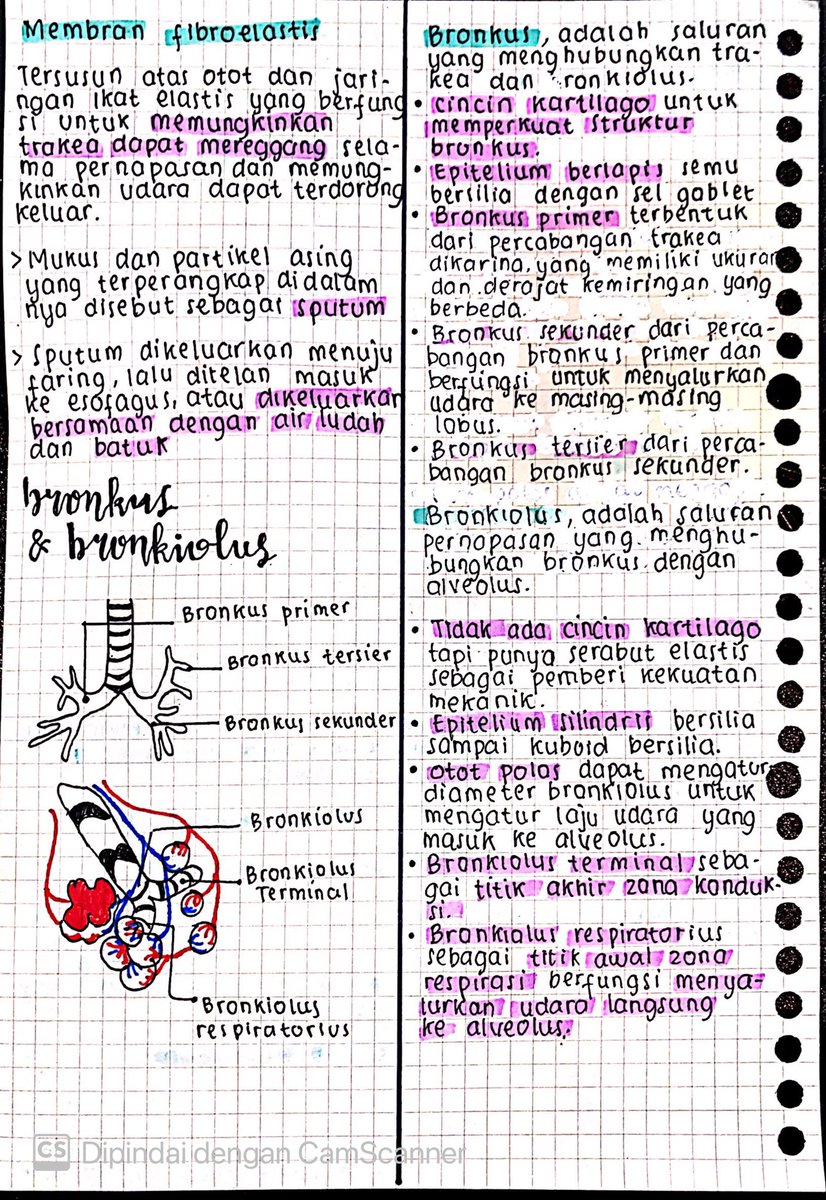 Membran fibroelastis
Tersusun atas otot dan jari-
ngan ikat elastis yang berfung
si untuk memungkinkan
trakea dapat mereggang sela-
ma pernapasan dan memung-
kinkan udara dapat terdorong
keluar.
> Mukus dan partikel asing
yang terperangkap didalam
nya disebut sebagai sputum
> Sputum dikeluarkan menuju
faring, lalu ditelan masuk
ke esofagus, atau dikeluarkan
bersamaan dengan air ludah
dan batuk
bronkus
& bronkiolus
Bronkus primer
Bronkus tersier
Bronkus sekunder
Bronkiolus
Bronkiolus
Terminal
Bronkiolus
respiratorius
Bronkus, adalah saluran
yang menghubungkan tra-
kea dan ronkiolus.
• Cincin kartilago untuk
memperkuat struktur
bronkus.
• Epitelium berlapis semu
bersilia dengan sel goblet
• Bronkus primer terbentuk
dari percabangan trakea
dikarina, yang memiliki ukuran
dan derajat kemiringan yang
berbeda.
• Bronkus sekunder dari perca-
bangan bronkus primer dan
berfungsi untuk menyalurkan
udara ke masing-masing
lobus.
• Bronkus tersier dari perca-
bangan bronkus sekunder.
Bronkiolus, adalah saluran
pernapasan yang menghu-
bungkan bronkus dengan
alveolus.
• Tidak ada cincin kartilago
tapi punya serabut elastis
sebagai pemberi kekuatan
mekanik.
• Epitelium silindris bersilia
sampai kuboid bersilia.
• Otot polos dapat mengatur
diameter bronkiolus untuk
mengatur laju udara yang
masuk ke alveolus.
• Bronkiolus terminal seba-
gai titik akhir zona konduk-
si.
• Bronkiolus respiratorius
sebagai titik awal zona
respirasi berfungsi menya-
lurkan udara langsung
ke alveolus.
CS Dipindai dengan CamScanner